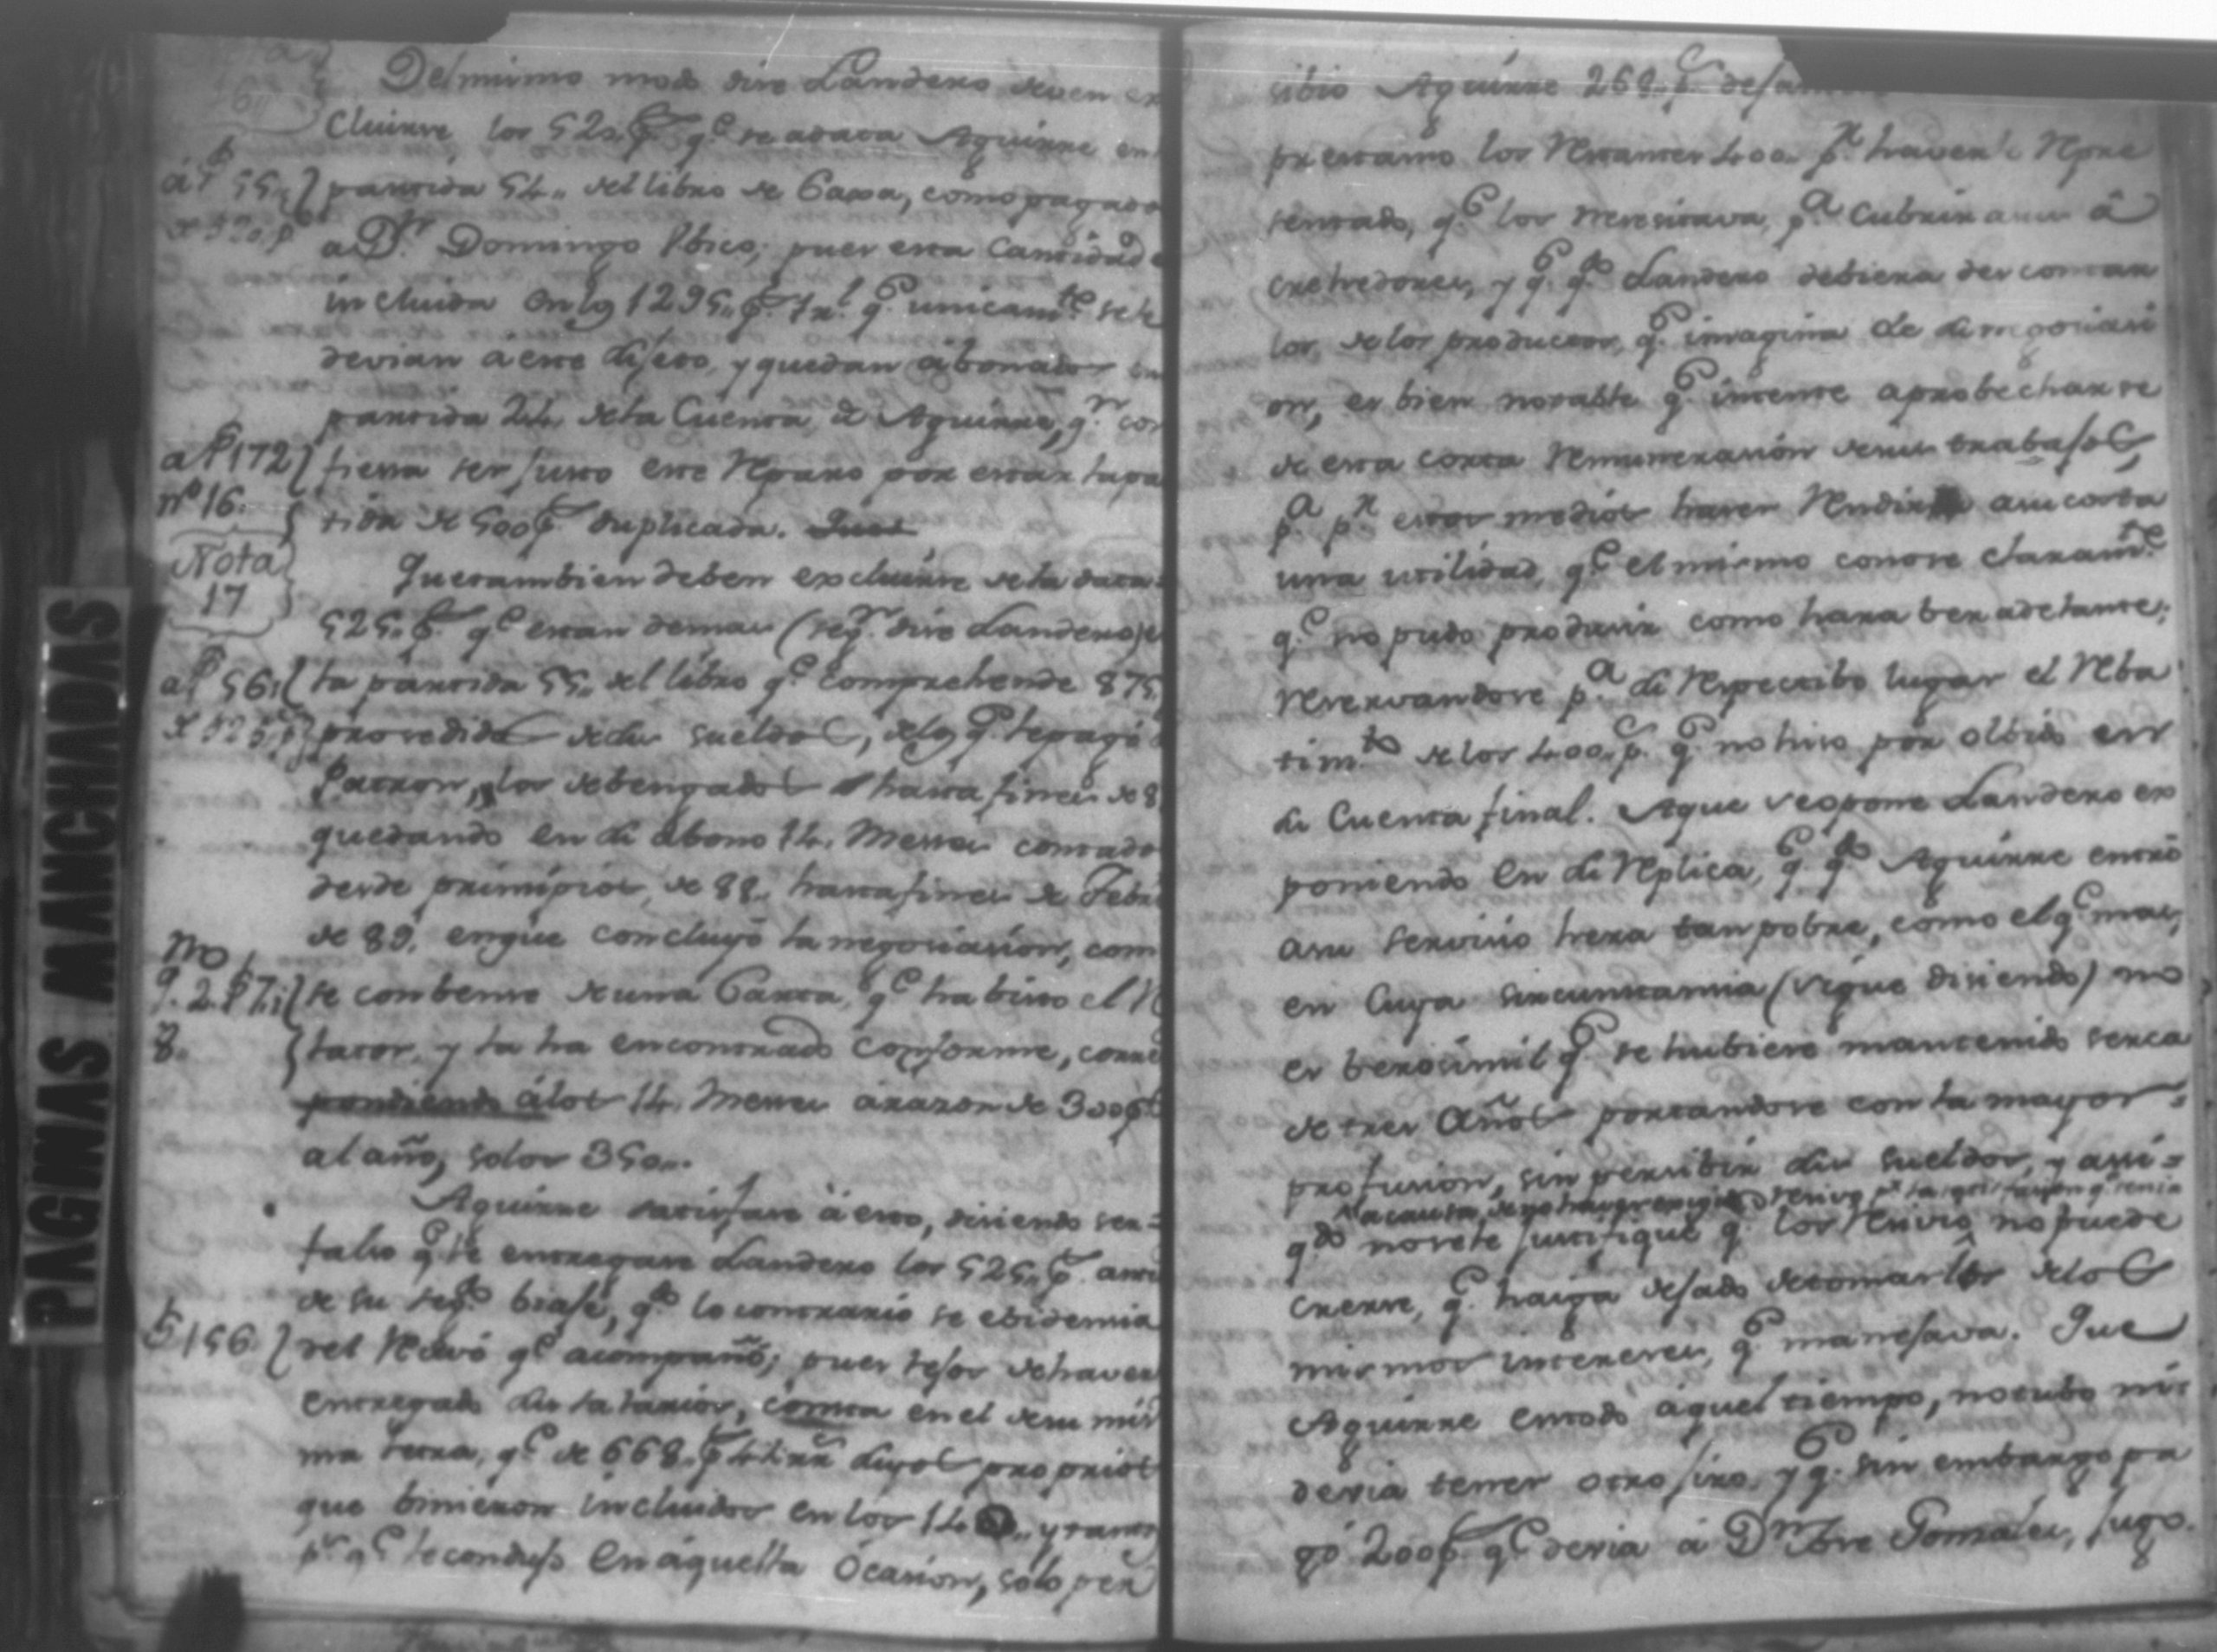 Del mismo modo dice Landero deven ex
cluirse, los 520 p.s q.e se adata Aguirre en
partida 54,, del libro de Caxa, como pagados
a D.n Domingo Rico; pues esta Cantidad
incluida en los 1295,, p.s q.e unicam.te se le
devian á este sujeto, y quedan abonados en
partida 24 de la Cuenta de Aguirre, q.n con
fiesa ser justo este Reparo por estar la par
tida de 500 p.s duplicada.
Nota
17
Que tambien deben excluirse de la data
525,, p.s q.e estan demas (seg.n dice Landero) en
la partida 55,, del libro q.e Comprehende 875
procedidos de sus sueldos, de los q.e le pagó
Patron, los debengados hasta fines de 8
quedando en su abono 14,, Meses contados
desde principios de 88,, hasta fines de Febr
de 89, en que concluyó la negociacion, com
se combense de una Carta, q.e ha visto el
tador, y la ha encontrado Conforme, corres
pondiendo á los 14,, Meses á razon de 300 p.s
al año, solos 350,,.
Aguirre satisface á esto, diciendo ser
falso q.e le entregase Landero los 525,, p.s antes
de su seg.do biaje, q.do lo contrario se evidencia
del Recivo q.e acompañó; pues lejos de haver
entregado su salario, consta en el de su mis
ma letra, q.e de 668,, p.s 4 rr.s suyos proprios
que binieron incluidos en los 14
p.r q.e se condujo en aquella Ocasion, solo per
af 55,,
af 172
nº 16.
af 56,,
f 156
sibio Aguirre 268,, p.s dejan
prestamo los Restantes 400 p.r haverle Repre
sentado, q.e los necesitava, p.a Cubrir a sus
acrehedores, y q.e q.do Landero debiera descontar
los, de los productos, q.e imagina de su negociasi
on, es bien notable q.e intente aprobecharse
de esta corta Remuneración de sus trabajos,
p.a p.r estos medios haver Rendir a su costa
una utilidad, q.e el mismo conose claram.te
q.e no pudo producir como hara ber adelante;
Reservandose p.a su Respectibo lugar el Reba
tim.to de los 400,, p.s q.e no hiso por olbido en
su Cuenta final. Aque se opone Landero ex
poniendo en su Replica, q.e q.do Aguirre entró
a su servicio hera tan pobre, como el q.e mas,
en Cuya sircunstancia (sigue disiendo) no
es berosimil q.e se hubiese mantenido serca
de tres Años portandose con la mayor
profusion, sin persibir sus sueldos, y asi
a causa de no haver
q.do no se le justifique q.e los Recivio no puede
creerse, q.e haiga dejado de tomarlos de los
mismos intereses, q.e manejava. Que
Aguirre en todo aquel tiempo, no tubo ni
devia tener otro jiro, y q.e sin embargo pa
gó 200 p.s q.e devia á D.n Jose Gonzales,
PAGINAS MANCHADAS